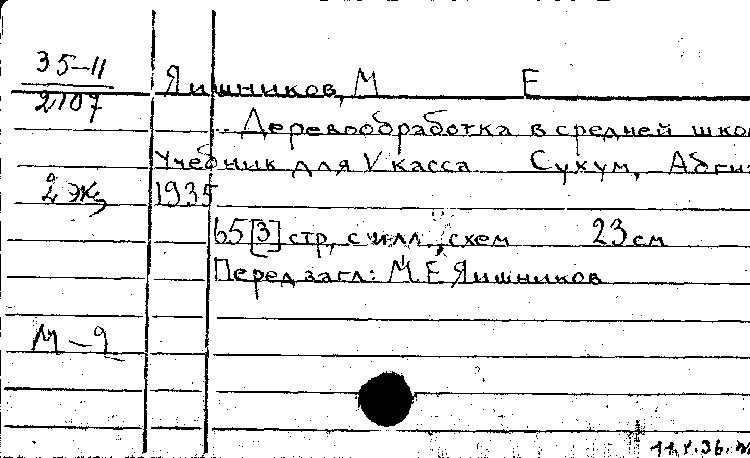 35-11
2107
Яишников, М Е
Деревообработка в средней шко
Учебник для V касса Сухум, Абги
2 экз 1935
65 [3] стр, с илл., схем 23 см
Перед загл: М. Е Яишников
М-9